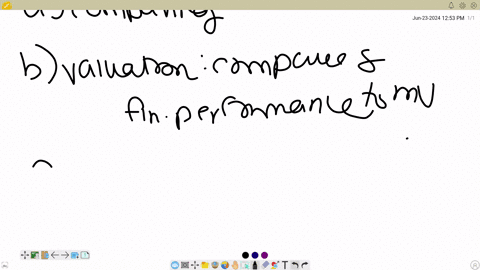 b) valuation: compare &
fin. performance to mv
Jun-23-2024 12:53 PM 1/1